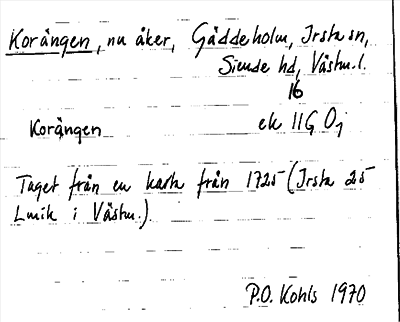 Korängen, nu åker, Gäddeholm, Irsta sn,
Siende hd, Västm. l.
16
Korängen ek 11G 0j
Taget från en karta från 1725 (Irsta 25
Lmk i Västm.)
P.O. Kohls 1970